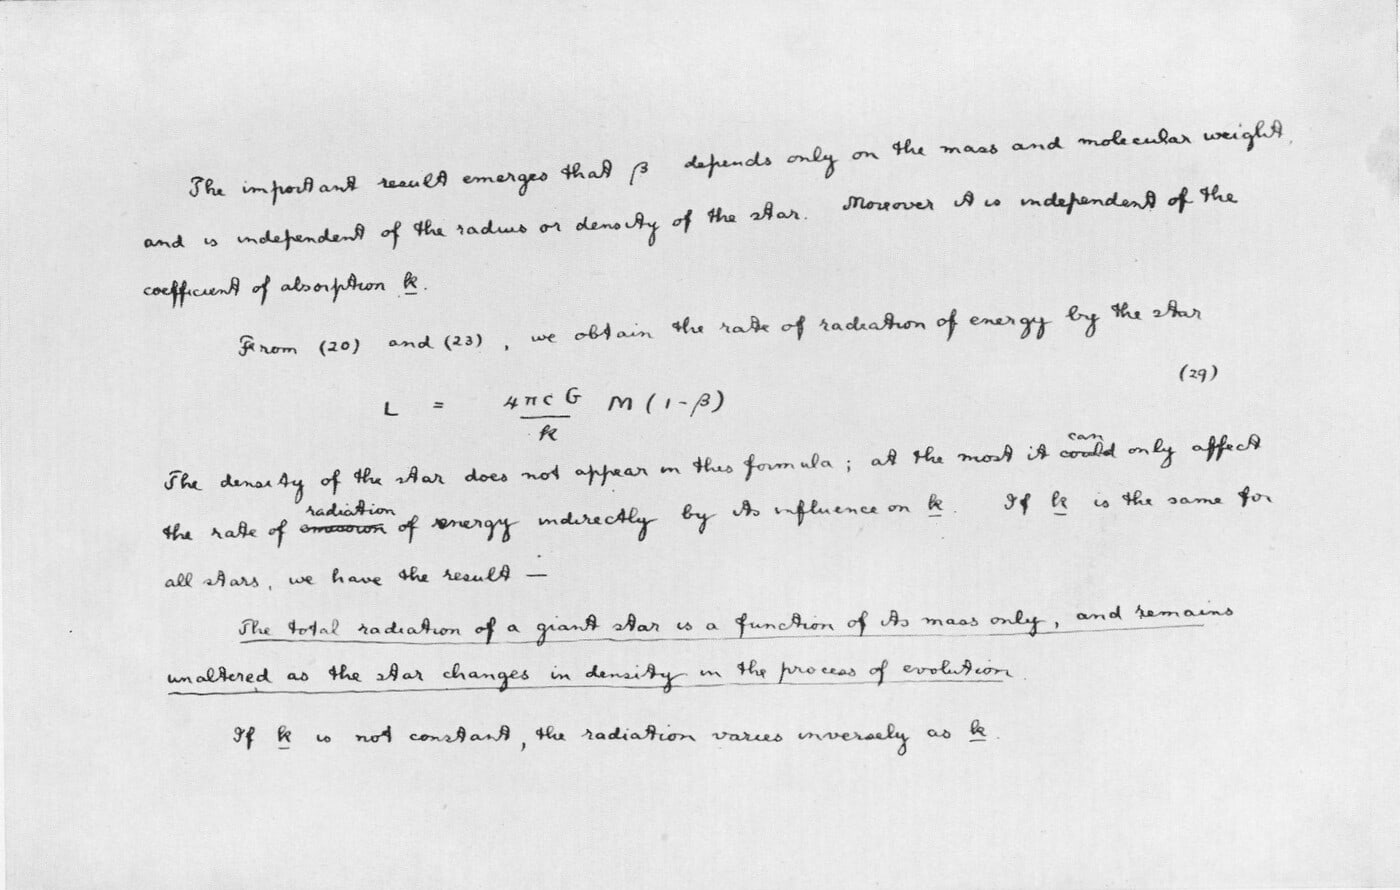 The important result emerges that β depends only on the mass and molecular weight,
and is independent of the radius or density of the star. Moreover it is independent of the
coefficient of absorption k.
From (20) and (23), we obtain the rate of radiation of energy by the star
(29)
L = 4πcG/k M (1-β)
can
The density of the star does not appear in this formula; at the most it could only affect
radiation
the rate of emission of energy indirectly by its influence on k. If k is the same for
all stars, we have the result —
The total radiation of a giant star is a function of its mass only, and remains
unaltered as the star changes in density in the process of evolution.
If k is not constant, the radiation varies inversely as k.